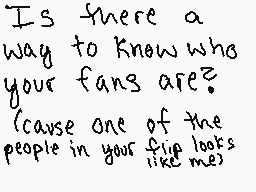 Is there a
way to know who
your fans are?
(cause one of the
people in your flip looks
like me)